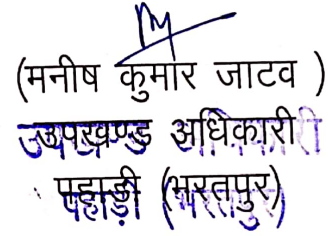 (मनीष कुमार जाटव )
उपखण्ड अधिकारी
पहाड़ी (भरतपुर)